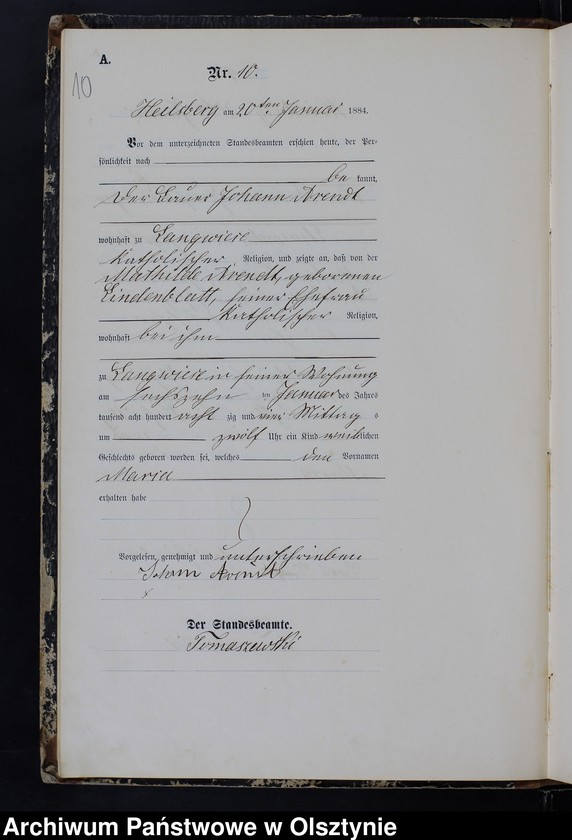 A.
10
Nr. 10.
Heilsberg am 20ten Januar 1884.
Vor dem unterzeichneten Standesbeamten erschien heute, der Per-
sönlichkeit nach
be kannt,
der Bauer Johann Arendt
wohnhaft zu Langwiese
katholischer Religion, und zeigte an, daß von der
Mathilde Arendt, geborenen
Lindenblatt, seiner Ehefrau
katholischer Religion,
wohnhaft bei ihm
zu Langwiese in seiner Wohnung
am sechszehn ten Januar des Jahres
tausend acht hundert acht zig und vier Mittag s
um zwölf Uhr ein Kind weiblichen
Geschlechts geboren worden sei, welches den Vornamen
Maria
erhalten habe
Vorgelesen, genehmigt und unterschrieben
Johann Arendt
Der Standesbeamte.
Tomaszewski
Archiwum Państwowe w Olsztynie